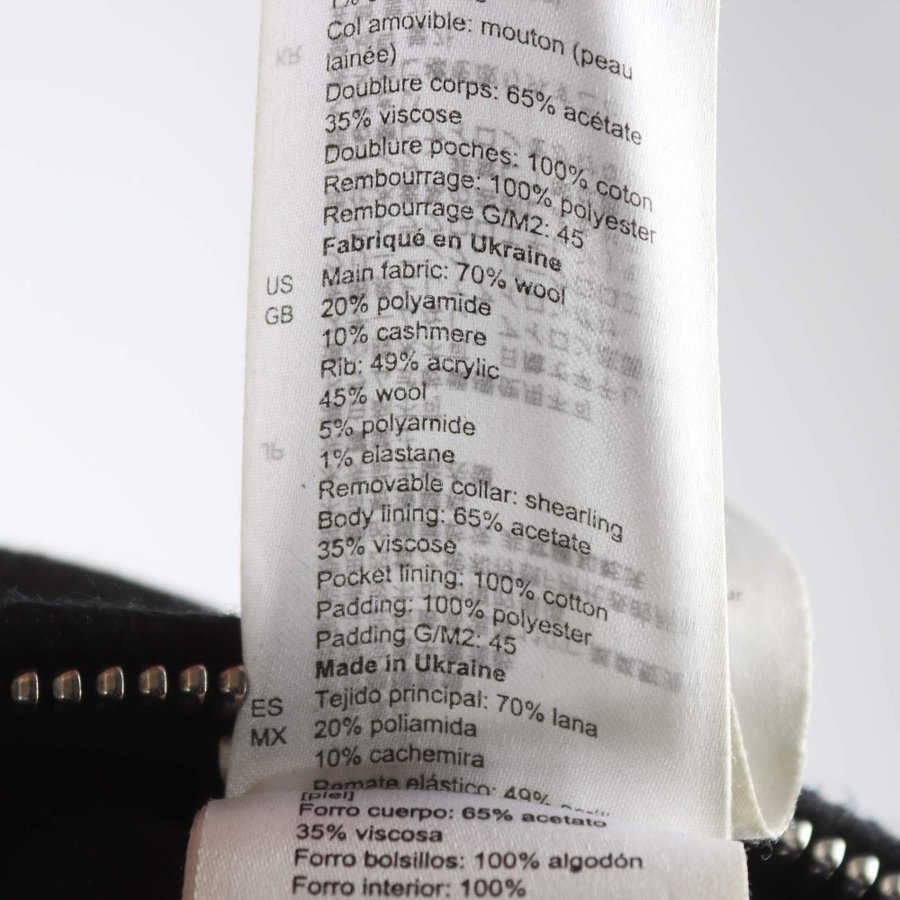 Col amovible: mouton (peau
lainée)
Doublure corps: 65% acétate
35% viscose
Doublure poches: 100% coton
Rembourrage: 100% polyester
Rembourrage G/M2: 45
Fabriqué en Ukraine
US Main fabric: 70% wool
GB 20% polyamide
10% cashmere
Rib: 49% acrylic
45% wool
5% polyamide
1% elastane
Removable collar: shearling
Body lining: 65% acetate
35% viscose
Pocket lining: 100% cotton
Padding: 100% polyester
Padding G/M2: 45
Made in Ukraine
ES Tejido principal: 70% lana
MX 20% poliamida
10% cachemira
Remate elástico: 49%
[piel]
Forro cuerpo: 65% acetato
35% viscosa
Forro bolsillos: 100% algodón
Forro interior: 100%